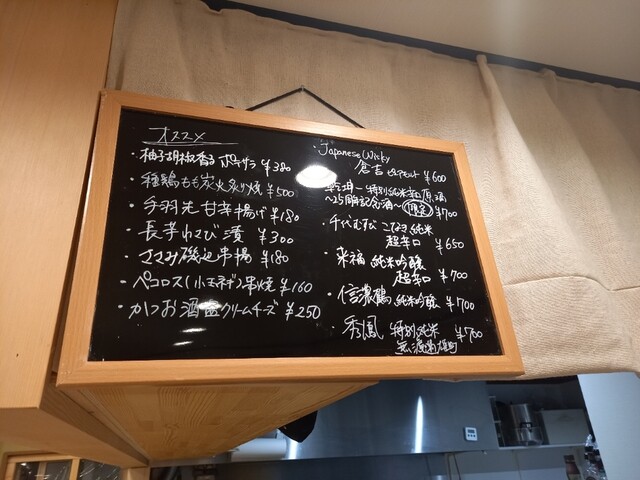 オススメ
・柚子胡椒香る ポテサラ ¥380
・種鶏もも炭火炙り焼 ¥500
・手羽先甘辛揚げ ¥180
・長芋わさび漬 ¥300
・ささみ磯辺串揚 ¥180
・ペコロス(小玉ネギ)串焼 ¥160
・かつお酒盗クリームチーズ ¥250
Japanese Wisky
倉吉 ピュアモルト ¥600
特別純米 原酒
記念酒〜 限定 ¥700
・千代むすび こなき純米
超辛口 ¥650
・来福 純米吟醸
超辛口 ¥700
・信濃鶴 純米吟醸 ¥700
・秀鳳 特別純米 ¥700
無濾過 雄町